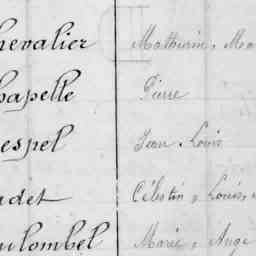 hevalier Mathurin, Ma
hapelle Pierre
espel Jean, Louis
adet Célestin, Louis,
oulombel Marie, Ange